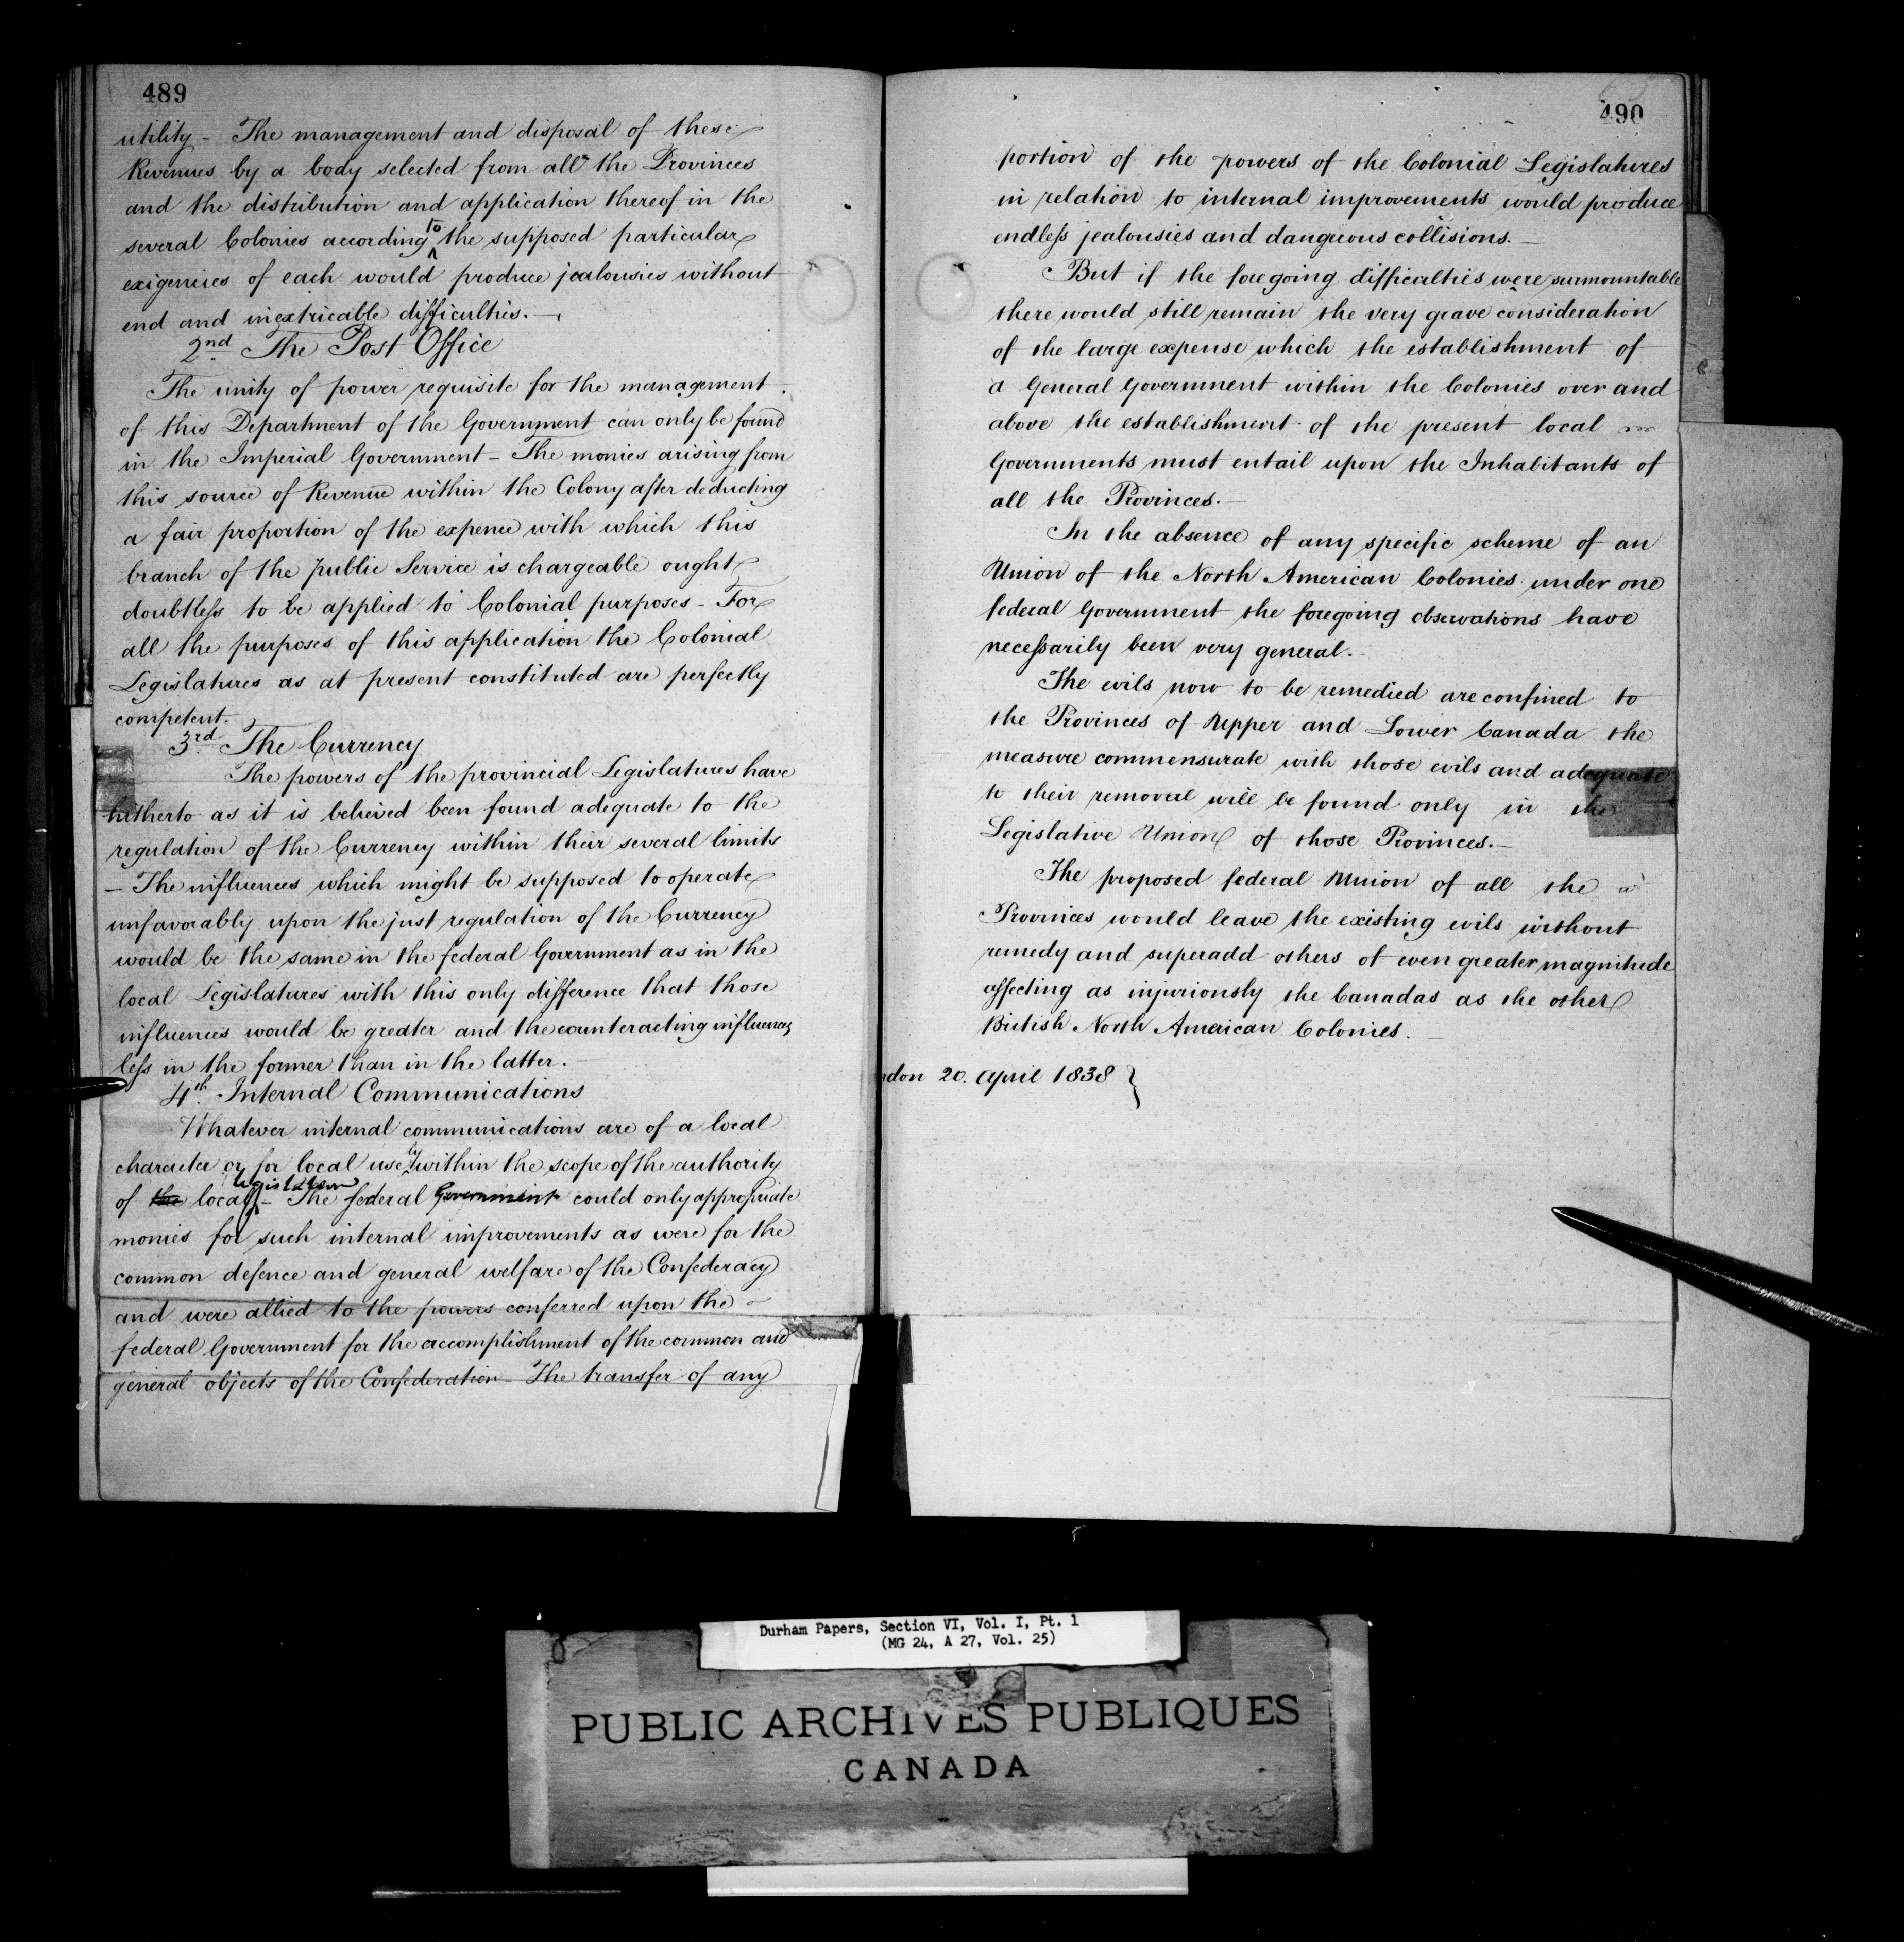 489
utility – The management and disposal of these
Revenues by a body selected from all the Provinces
and the distribution and application thereof in the
several Colonies according to the supposed particular
exigenies of each would produce jealousies without
end and inextricable difficulties. –
2nd The Post Office
The unity of power requisite for the management
of this Department of the Government can only be found
in the Imperial Government – The monies arising from
this source of Revenue within the Colony after deducting
a fair proportion of the expence with which this
branch of the public Service is chargeable ought
doubtless to be applied to Colonial purposes – For
all the purposes of this application the Colonial
Legislatures as at present constituted are perfectly
competent.
3rd The Currency
The powers of the provincial Legislatures have
hitherto as it is believed been found adequate to the
regulation of the Currency within their several limits
– The influences which might be supposed to operate
unfavorably upon the just regulation of the Currency
would be the same in the federal Government as in the
local Legislatures with this only difference that those
influences would be greater and the counteracting influences
less in the former than in the latter. –
4th Internal Communications
Whatever internal communications are of a local
character or for local use by within the scope of the authority
of the local legislature – The federal Government could only appropriate
monies for such internal improvements as were for the
common defence and general welfare of the Confederacy
and were allied to the powers conferred upon the
federal Government for the accomplishment of the common and
general objects of the Confederation – The transfer of any
490
portion of the powers of the Colonial Legislatures
in relation to internal improvements would produce
endless jealousies and dangerous collisions. –
But if the foregoing difficulties were surmountable
there would still remain the very grave consideration
of the large expense which the establishment of
a General Government within the Colonies over and
above the establishment of the present local
Governments must entail upon the Inhabitants of
all the Provinces. –
In the absence of any specific scheme of an
Union of the North American Colonies under one
federal Government the foregoing observations have
necessarily been very general.
The evils now to be remedied are confined to
the Provinces of Upper and Lower Canada the
measure commensurate with those evils and adequate
to their removal will be found only in the
Legislative Union of those Provinces. –
The proposed federal Union of all the
Provinces would leave the existing evils without
remedy and superadd others of even greater magnitude
affecting as injuriously the Canadas as the other
British North American Colonies. –
ndon 20. April 1838 }
Durham Papers, Section VI, Vol. I, Pt. 1
(MG 24, A 27, Vol. 25)
PUBLIC ARCHIVES PUBLIQUES
CANADA